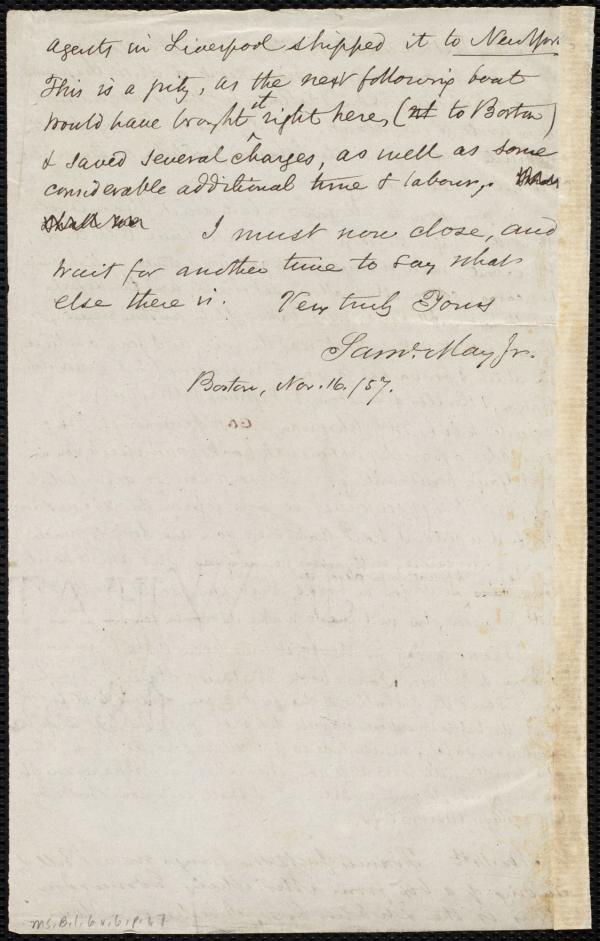 agents in Liverpool shipped it to New York.
This is a pity, as the next following boat
would have brought it right here, (to Boston)
& saved several charges, as well as some
considerable additional time & labour.
I must now close, and
wait for another time to say what
else there is. Very truly Yours
Saml. May Jr.
Boston, Nov. 16. /57.
Ms.B.1.6 v.6, p.67